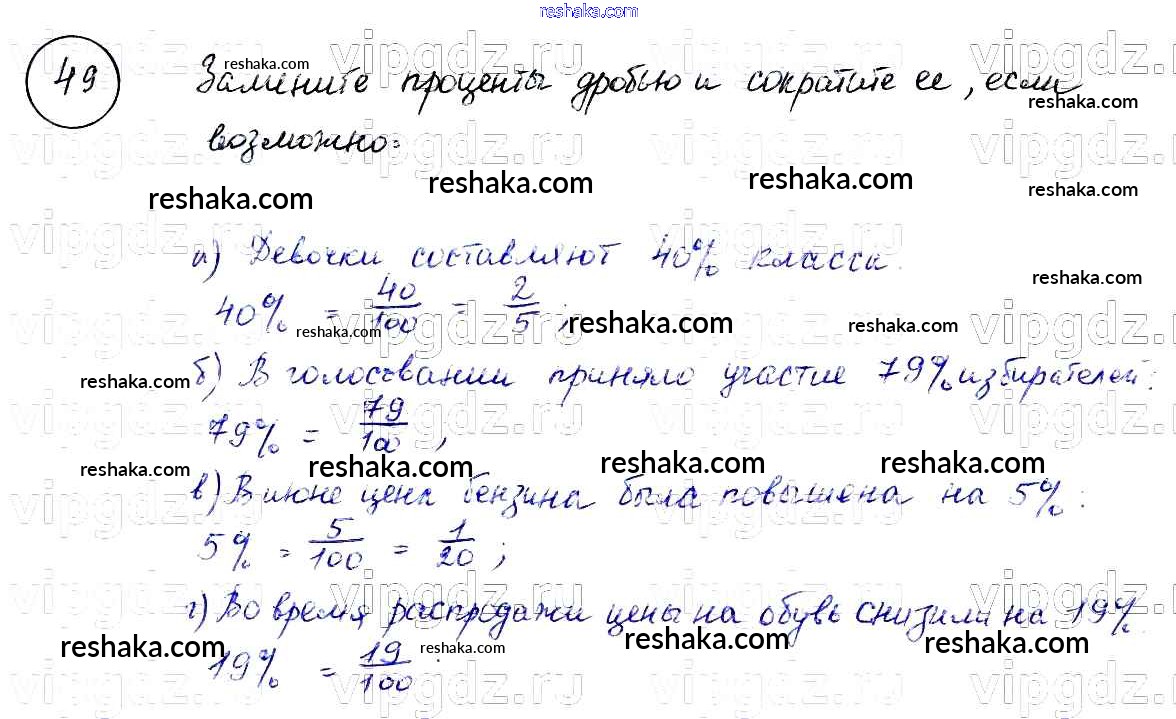 reshaka.com
49 Замените проценты дробью и сократите ее, если
возможно:
а) Девочки составляют 40% класса.
40% = 40/100 = 2/5;
б) В голосовании приняло участие 79% избирателей:
79% = 79/100,
в) В июне цена бензина была повышена на 5%:
5% = 5/100 = 1/20;
г) Во время распродажи цены на обувь снизили на 19%
19% = 19/100.
vipgdz.ru
reshaka.com